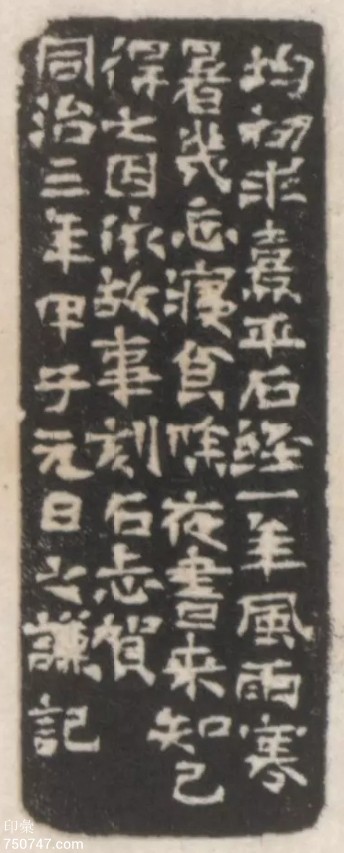 均初求熹平石經一年風雨寒
暑幾忘寢食除夜書來知已
得之因依故事刻石志賀
同治三年甲子元日之謙記
印彙
750747.com